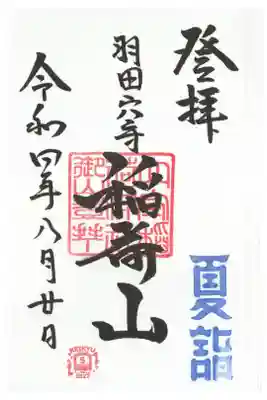 登拝
夏詣
羽田穴守
稲荷山
令和四年八月廿日